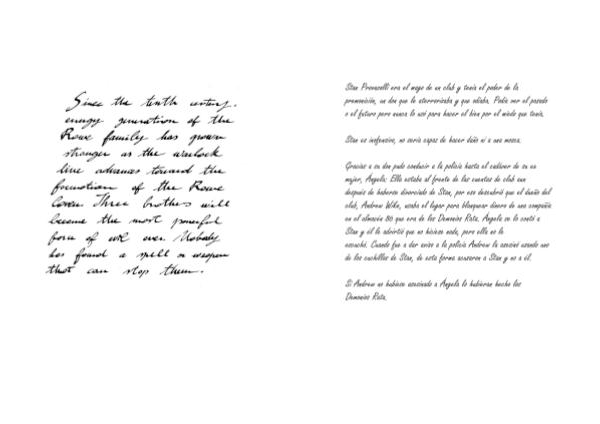 Since the tenth century.
every generation of the
Rowe family has grown
stronger as the warlock
line advances toward the
formation of the Rowe
Coven. Three brothers will
become the most powerful
force of evil ever. Nobody
has found a spell or weapon
that can stop them.
Stan Provazolli era el mago de un club y tenía el poder de la
premonición, un don que le aterrorizaba y que odiaba. Podía ver el pasado
o el futuro pero nunca lo usó para hacer el bien por el miedo que tenía.
Stan es inofensivo, no sería capaz de hacer daño ni a una mosca.
Gracias a su don pudo conducir a la policía hasta el cadáver de su ex
mujer, Angela: Ella estaba al frente de las cuentas de club aun
después de haberse divorciado de Stan, por eso descubrió que el dueño del
club, Andrew Wike, usaba el lugar para blanquear dinero de una compañía
en el almacén 80 que era de los Demonios Rata. Angela se lo contó a
Stan y él le advirtió que no hiciese nada, pero ella no le
escuchó. Cuando fue a dar aviso a la policía Andrew la asesinó usando uno
de los cuchillos de Stan, de esta forma acusaron a Stan y no a él.
Si Andrew no hubiese asesinado a Angela lo hubieran hecho los
Demonios Rata.